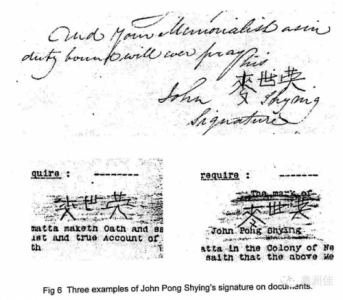 And Your Memorialist as in
duty bound will ever pray
his
John 麥世英 Shying
Signature
quire : --------
麥世英
matta maketh Oath and sa
ust and true Account of
th
require : --------
The mark of
麥世英
John Pong Shying
atta in the Colony of Ne
saith that the above Me
Fig 6 Three examples of John Pong Shying's signature on documents.